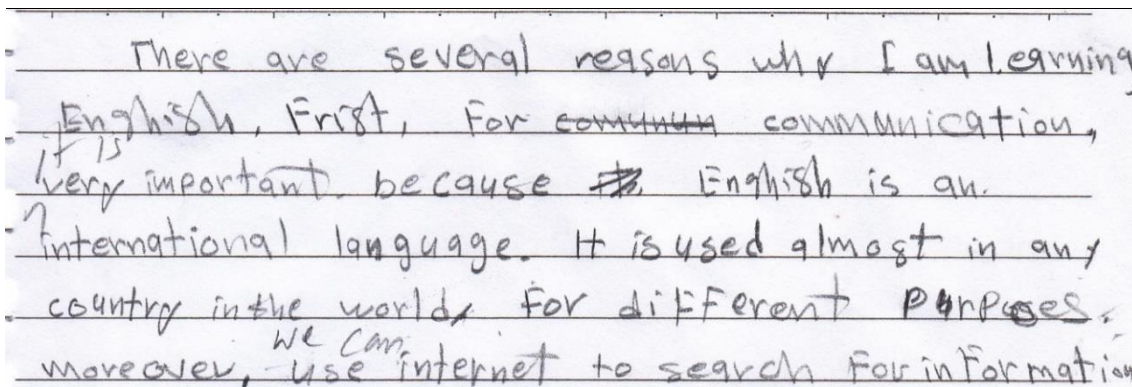 There are several reasons why I am Learning
Enghish, Frist, For communication,
it is
very important because Enghish is an
international language. It is used almost in any
country in the world, For different purposes.
we can
moreover, use internet to search For information